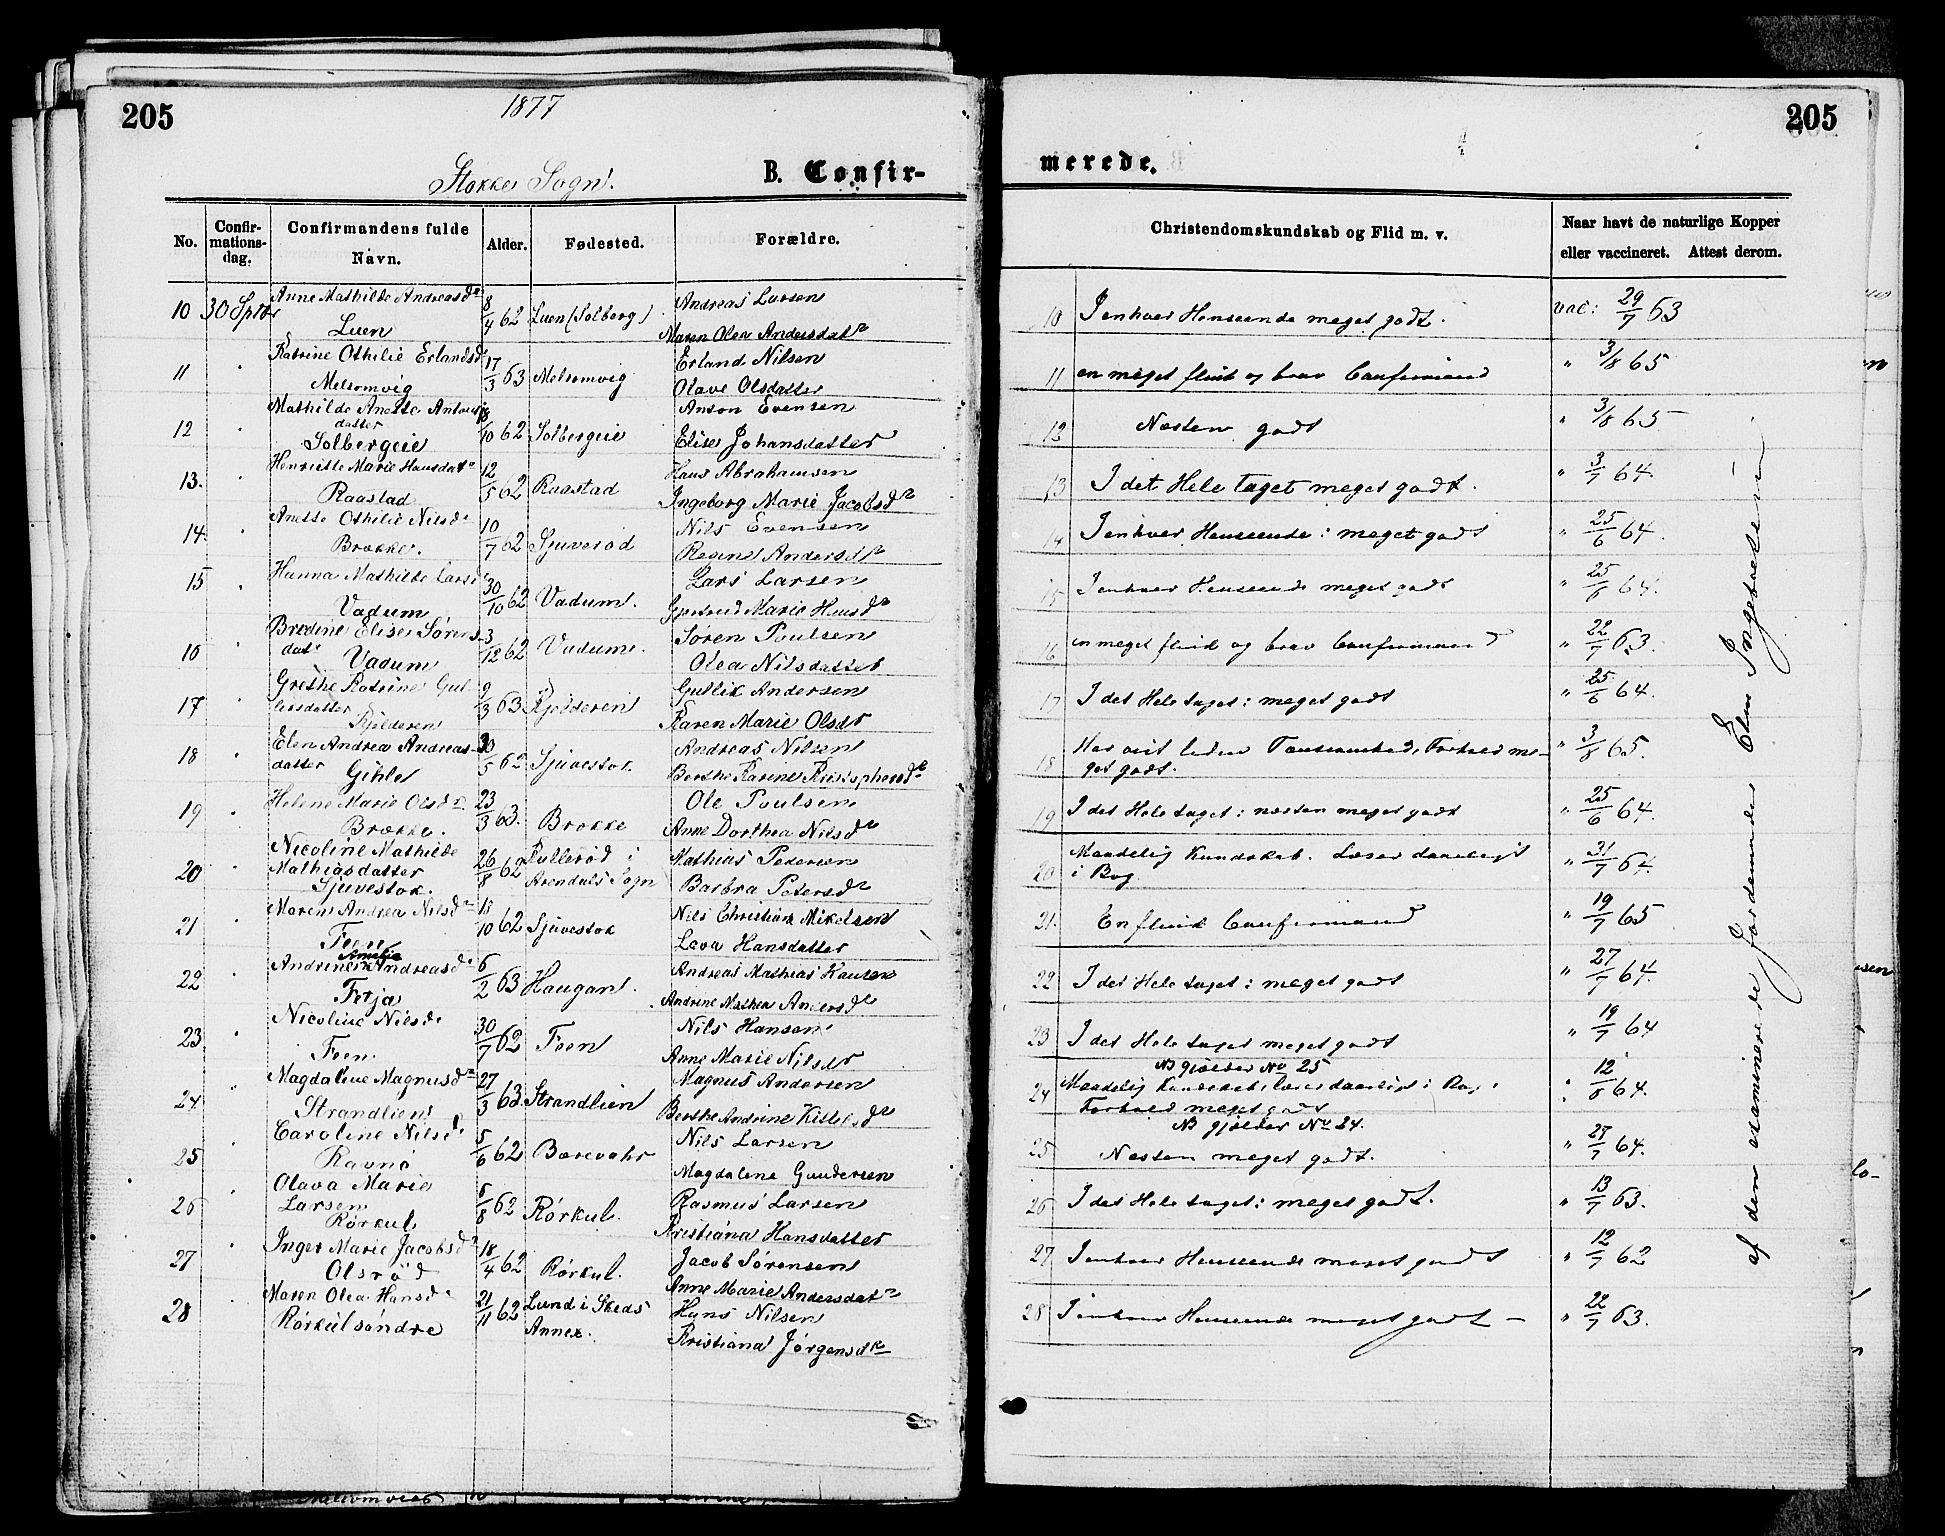 205
1877
Stokke Sogn.
B. Confir-
No.
Confir-
mations-
dag.
Confirmandens fulde
Navn.
Alder.
Fødested.
Forældre.
10 30 Sptbr Anne Mathilde Andreasdr
Luen
8/4 62 Luen (Solberg)
Andreas Larsen
Maren Olea Andersdatr
11 " Katrine Othilie Erlandsdr
Melsomvig
17/3 63 Melsomvig
Erland Nilsen
Olave Olsdatter
12 " Mathilde Anette Antons
datter
Solbergeie
18/10 62 Solbergeie
Anton Evensen
Elise Johansdatter
13. " Henriette Marie Hansdatr
Raastad
12/5 62 Raastad
Hans Abrahamsen
Ingeborg Marie Jacobsdr
14. " Anette Othilie Nilsdr
Brække.
10/7 62 Sjuverød
Nils Evensen
Regine Andersdr
15 " Hanna Mathilde Larsdr
Vadum
30/10 62 Vadum.
Lars Larsen
Gjertrud Marie Hansdr
16 " Bredine Elise Sørens-
datr
Vadum
3/12 62 Vadum.
Søren Poulsen
Olea Nilsdatter
17 " Grethe Katrine Gul-
leksdatter
Kjilderen
9/3 63 Kjølderen
Gullik Andersen
Karen Marie Olsdr
18 " Elen Andrea Andreas-
datter
Gihle
30/5 62 Sjuvestok
Andreas Nilsen
Berthe Karine Kristophersdr
19 " Helene Marie Olsdr
Brække.
23/3 63. Brække
Ole Poulsen
Anne Dorthea Nilsdr
20 " Nicoline Mathilde
Mathiasdatter
Sjuvestok.
26/8 62 Pullerød i
Arendals Sogn
Mathias Pedersen
Barbra Petersdr
21 " Maren Andrea Nilsdr
Feen
18/10 62 Sjuvestok
Nils Christian Mikelsen
Lava Hansdatter
22 " Amalie
Andrine Andreasdr
Fetja
6/2 63 Haugan.
Andreas Mathias Hansen
Andrine Mathea Andersdr
23 " Nicoline Nilsdr
Feen.
30/7 62 Feen
Nils Hansen
Anne Marie Nilsdr
24 " Magdaline Magnusdr
Strandlien
27/3 63 Strandlien
Magnus Andersen
Berthe Andrine Kittelsdr
25 " Caroline Nilsdr
Ravnø
5/6 62 Bærevahr
Nils Larsen
Magdalene Gundersen
26 " Olava Marie
Larsen
Rørkul
6/8 62 Rørkul.
Rasmus Larsen
Kristiana Hansdatter
27 " Inger Marie Jacobsdr
Olsrød
18/4 62 Rørkul.
Jacob Sørensen
Anne Marie Andersdatr
28 " Maren Olea Hansdr
Rørkul søndre
21/11 62 Lund i Skeds
Annex.
Hans Nilsen
Kristiana Jørgensdr
205
merede.
Christendomskundskab og Flid m. v.
Naar havt de naturlige Kopper
eller vaccineret. Attest derom.
10 I enhver Henseende meget godt. vac: 29/7 63
11 en meget flink og brav Confirmand " 3/8 65
12 Næsten godt " 3/8 65
13 I det Hele taget meget godt. " 3/7 64.
14 I enhver Henseende: meget godt " 25/6 64.
15 I enhver Henseende meget godt " 25/6 64.
16 en meget flink og brav Confirmand " 22/7 63.
17 I det Hele taget: meget godt " 25/6 64.
18 Har vist liden Forhold me-
get godt. " 3/8 65.
19 I det Hele taget: næsten meget godt " 25/6 64.
20 Maadelig Kundskab. Læser daarligt
i Bog " 31/7 64.
21. En flink Confirmand " 19/7 65
22 I det Hele taget: meget godt " 27/7 64.
23 I det Hele taget meget godt " 19/7 64
NB gjælder No 25
24 Maadelig Kundskab, læser daarligt i Bog,
Forhold meget godt " 12/6 64.
NB gjælder No 24.
25 Næsten meget godt. " 27/7 64.
26 I det Hele taget: meget godt. " 13/7 63.
27 I enhver Henseende meget godt " 12/7 62
28 I enhver Henseende meget godt " 22/7 63.
af den examinerede Jordemoder Elen Ingebretsen